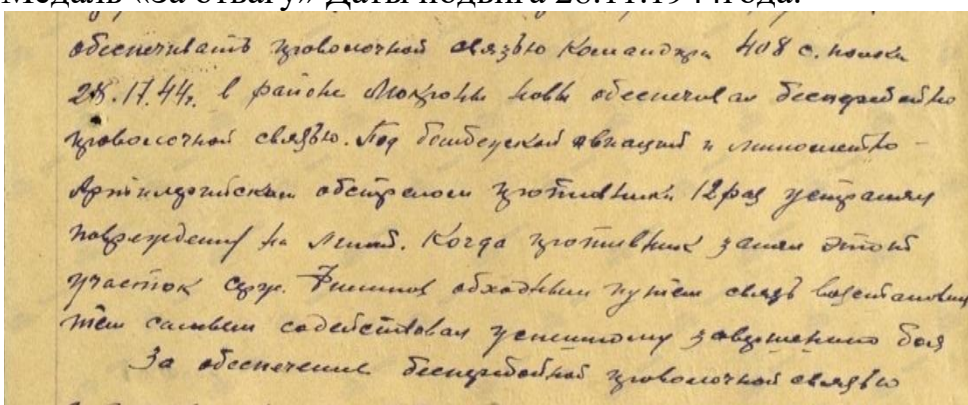 Медаль «За отвагу» Даты подвига 28.11.1944года.
обеспечивать проволочной связью командира 408 с. полка
28.11.44г. в районе Мокроны новы обеспечивал бесперебойно
проволочной связью. Под бомбежкой авиации и минометно-
Артиллерийским обстрелом противника 12 раз устранял
повреждения на линии. Когда противник занял этот
участок серж. Филиппов обходным путем связь восстановил
тем самым содействовал успешному завершению боя
За обеспечение бесперебойной проволочной связью